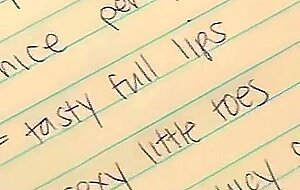 nice pe
= tasty full lips
sexy little toes